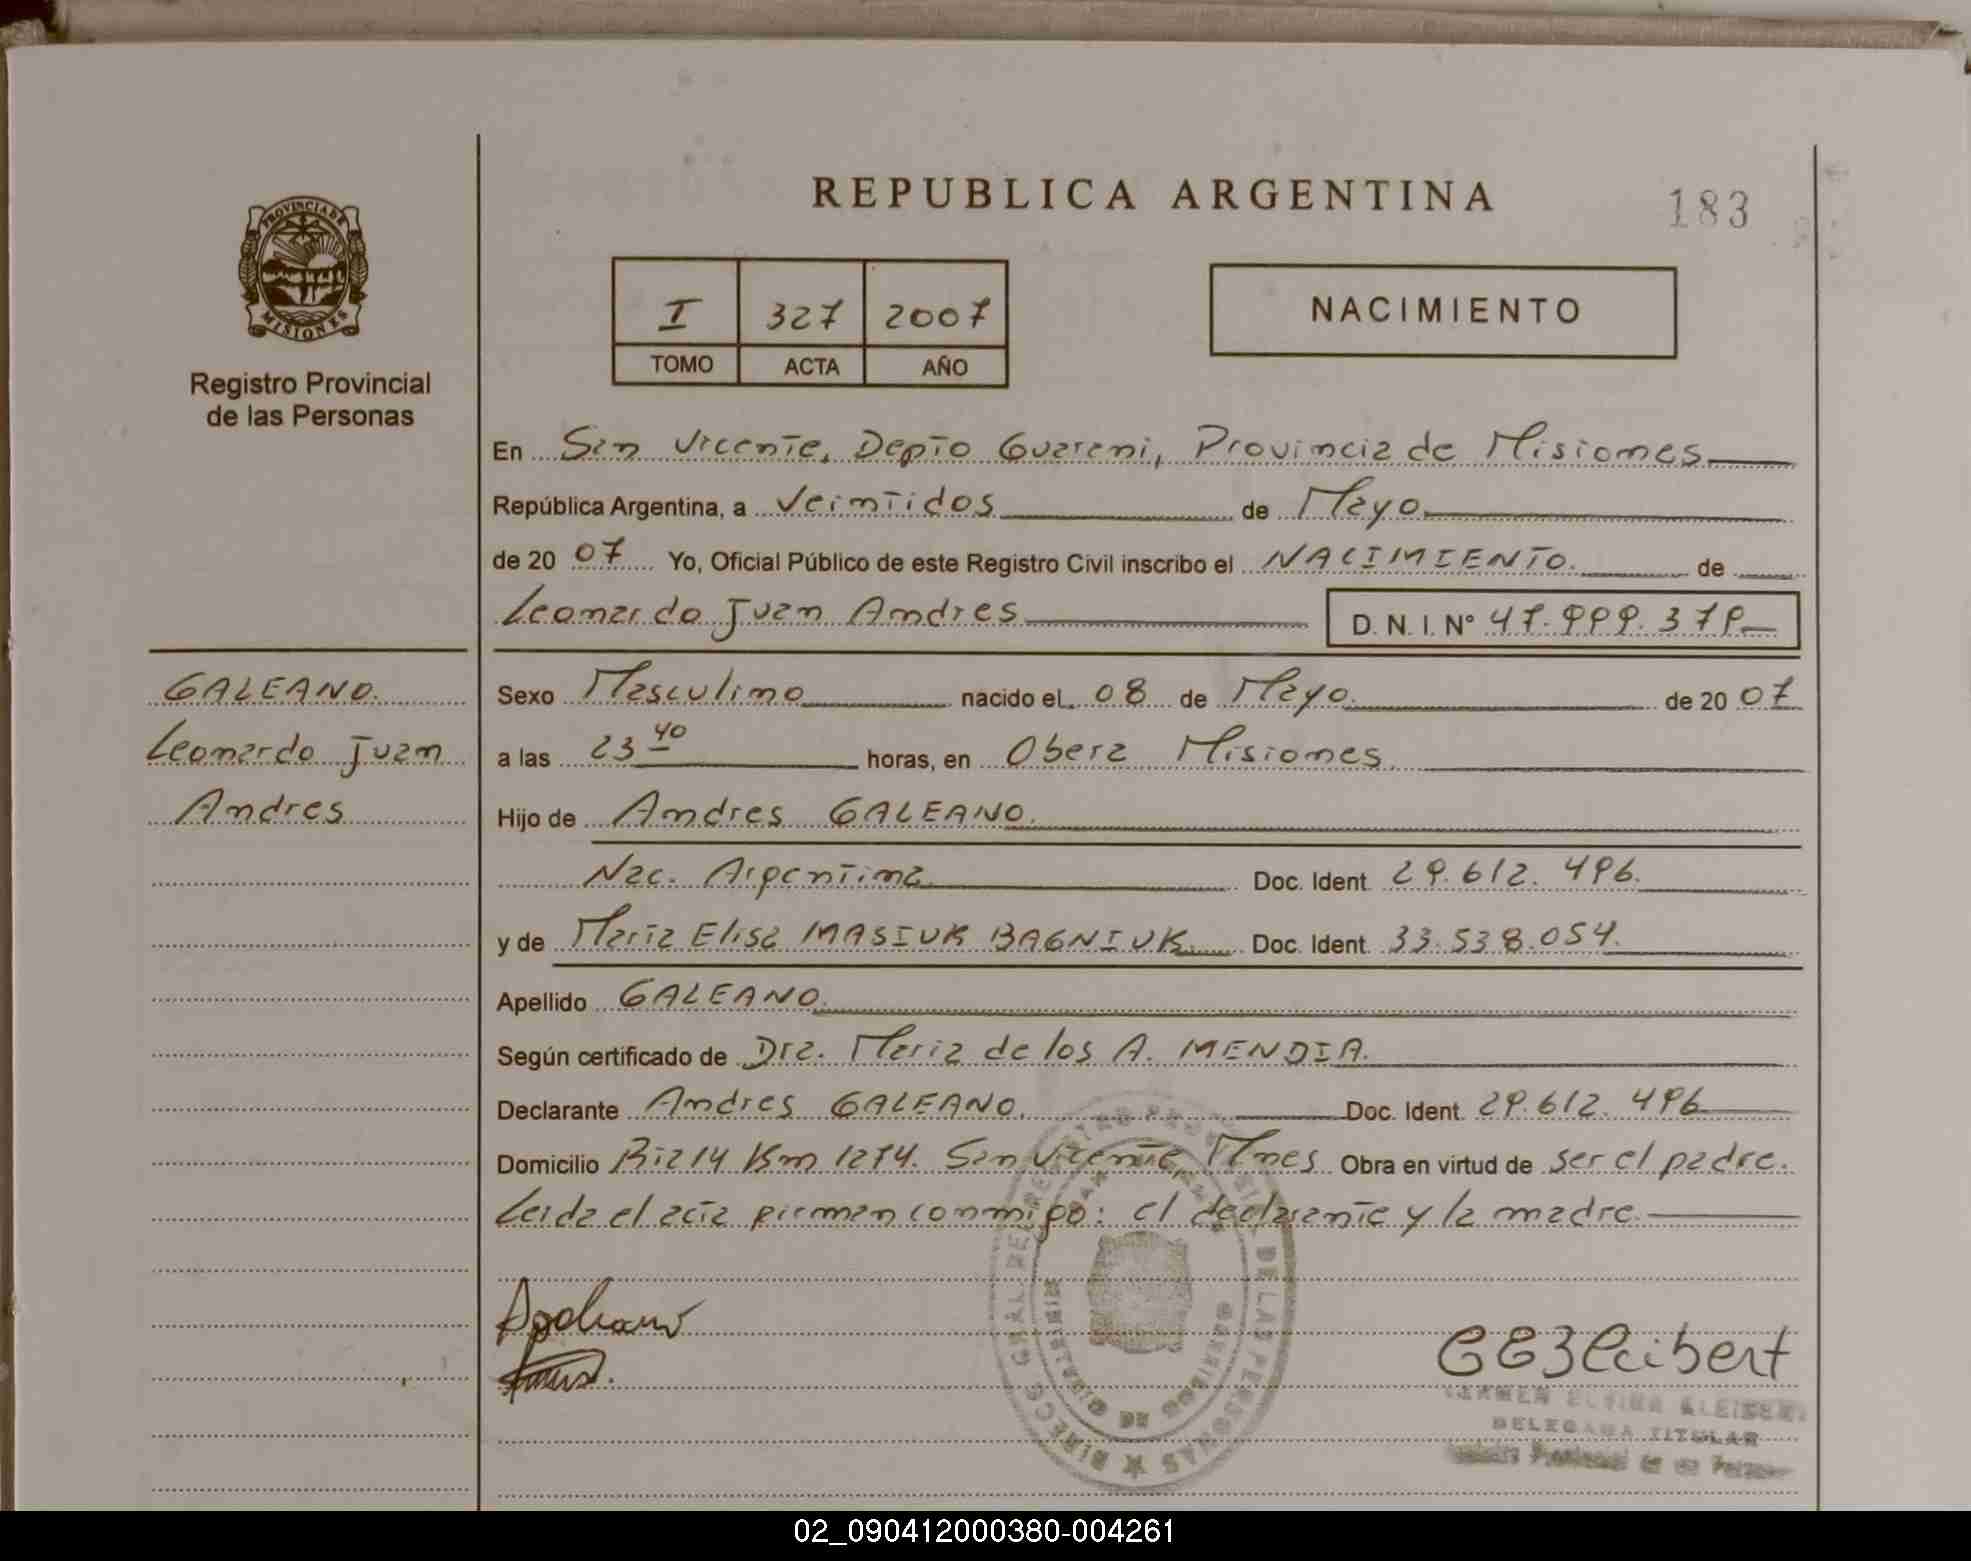 REPUBLICA ARGENTINA
183
PROVINCIA DE
MISIONES
Registro Provincial
de las Personas
I 327 2007
TOMO ACTA AÑO
NACIMIENTO
En San Vicente, Depto Guarani, Provincia de Misiones
República Argentina, a Veintidos de Mayo
de 20 07 Yo, Oficial Público de este Registro Civil inscribo el NACIMIENTO. de
Leonardo Juan Andres D. N. I. N° 47.999.379
GALEANO.
Leonardo Juan
Andres
Sexo Masculino nacido el 08 de Mayo. de 20 07
a las 23 40 horas, en Obera Misiones.
Hijo de Andres GALEANO.
Nac. Argentina Doc. Ident. 29.612.496.
y de Maria Elisa MASIUK BAGNIUK. Doc. Ident. 33.538.054.
Apellido GALEANO.
Según certificado de Dra. Maria de los A. MENDIA.
Declarante Andres GALEANO. Doc. Ident. 29.612.496
Domicilio Rta 14 Km 1274. San Vicente, Mnes Obra en virtud de ser el padre.
Leida el acta firman conmigo: el declarante y la madre.
DELEGADA TITULAR
DE LAS PERSONAS
02_090412000380-004261